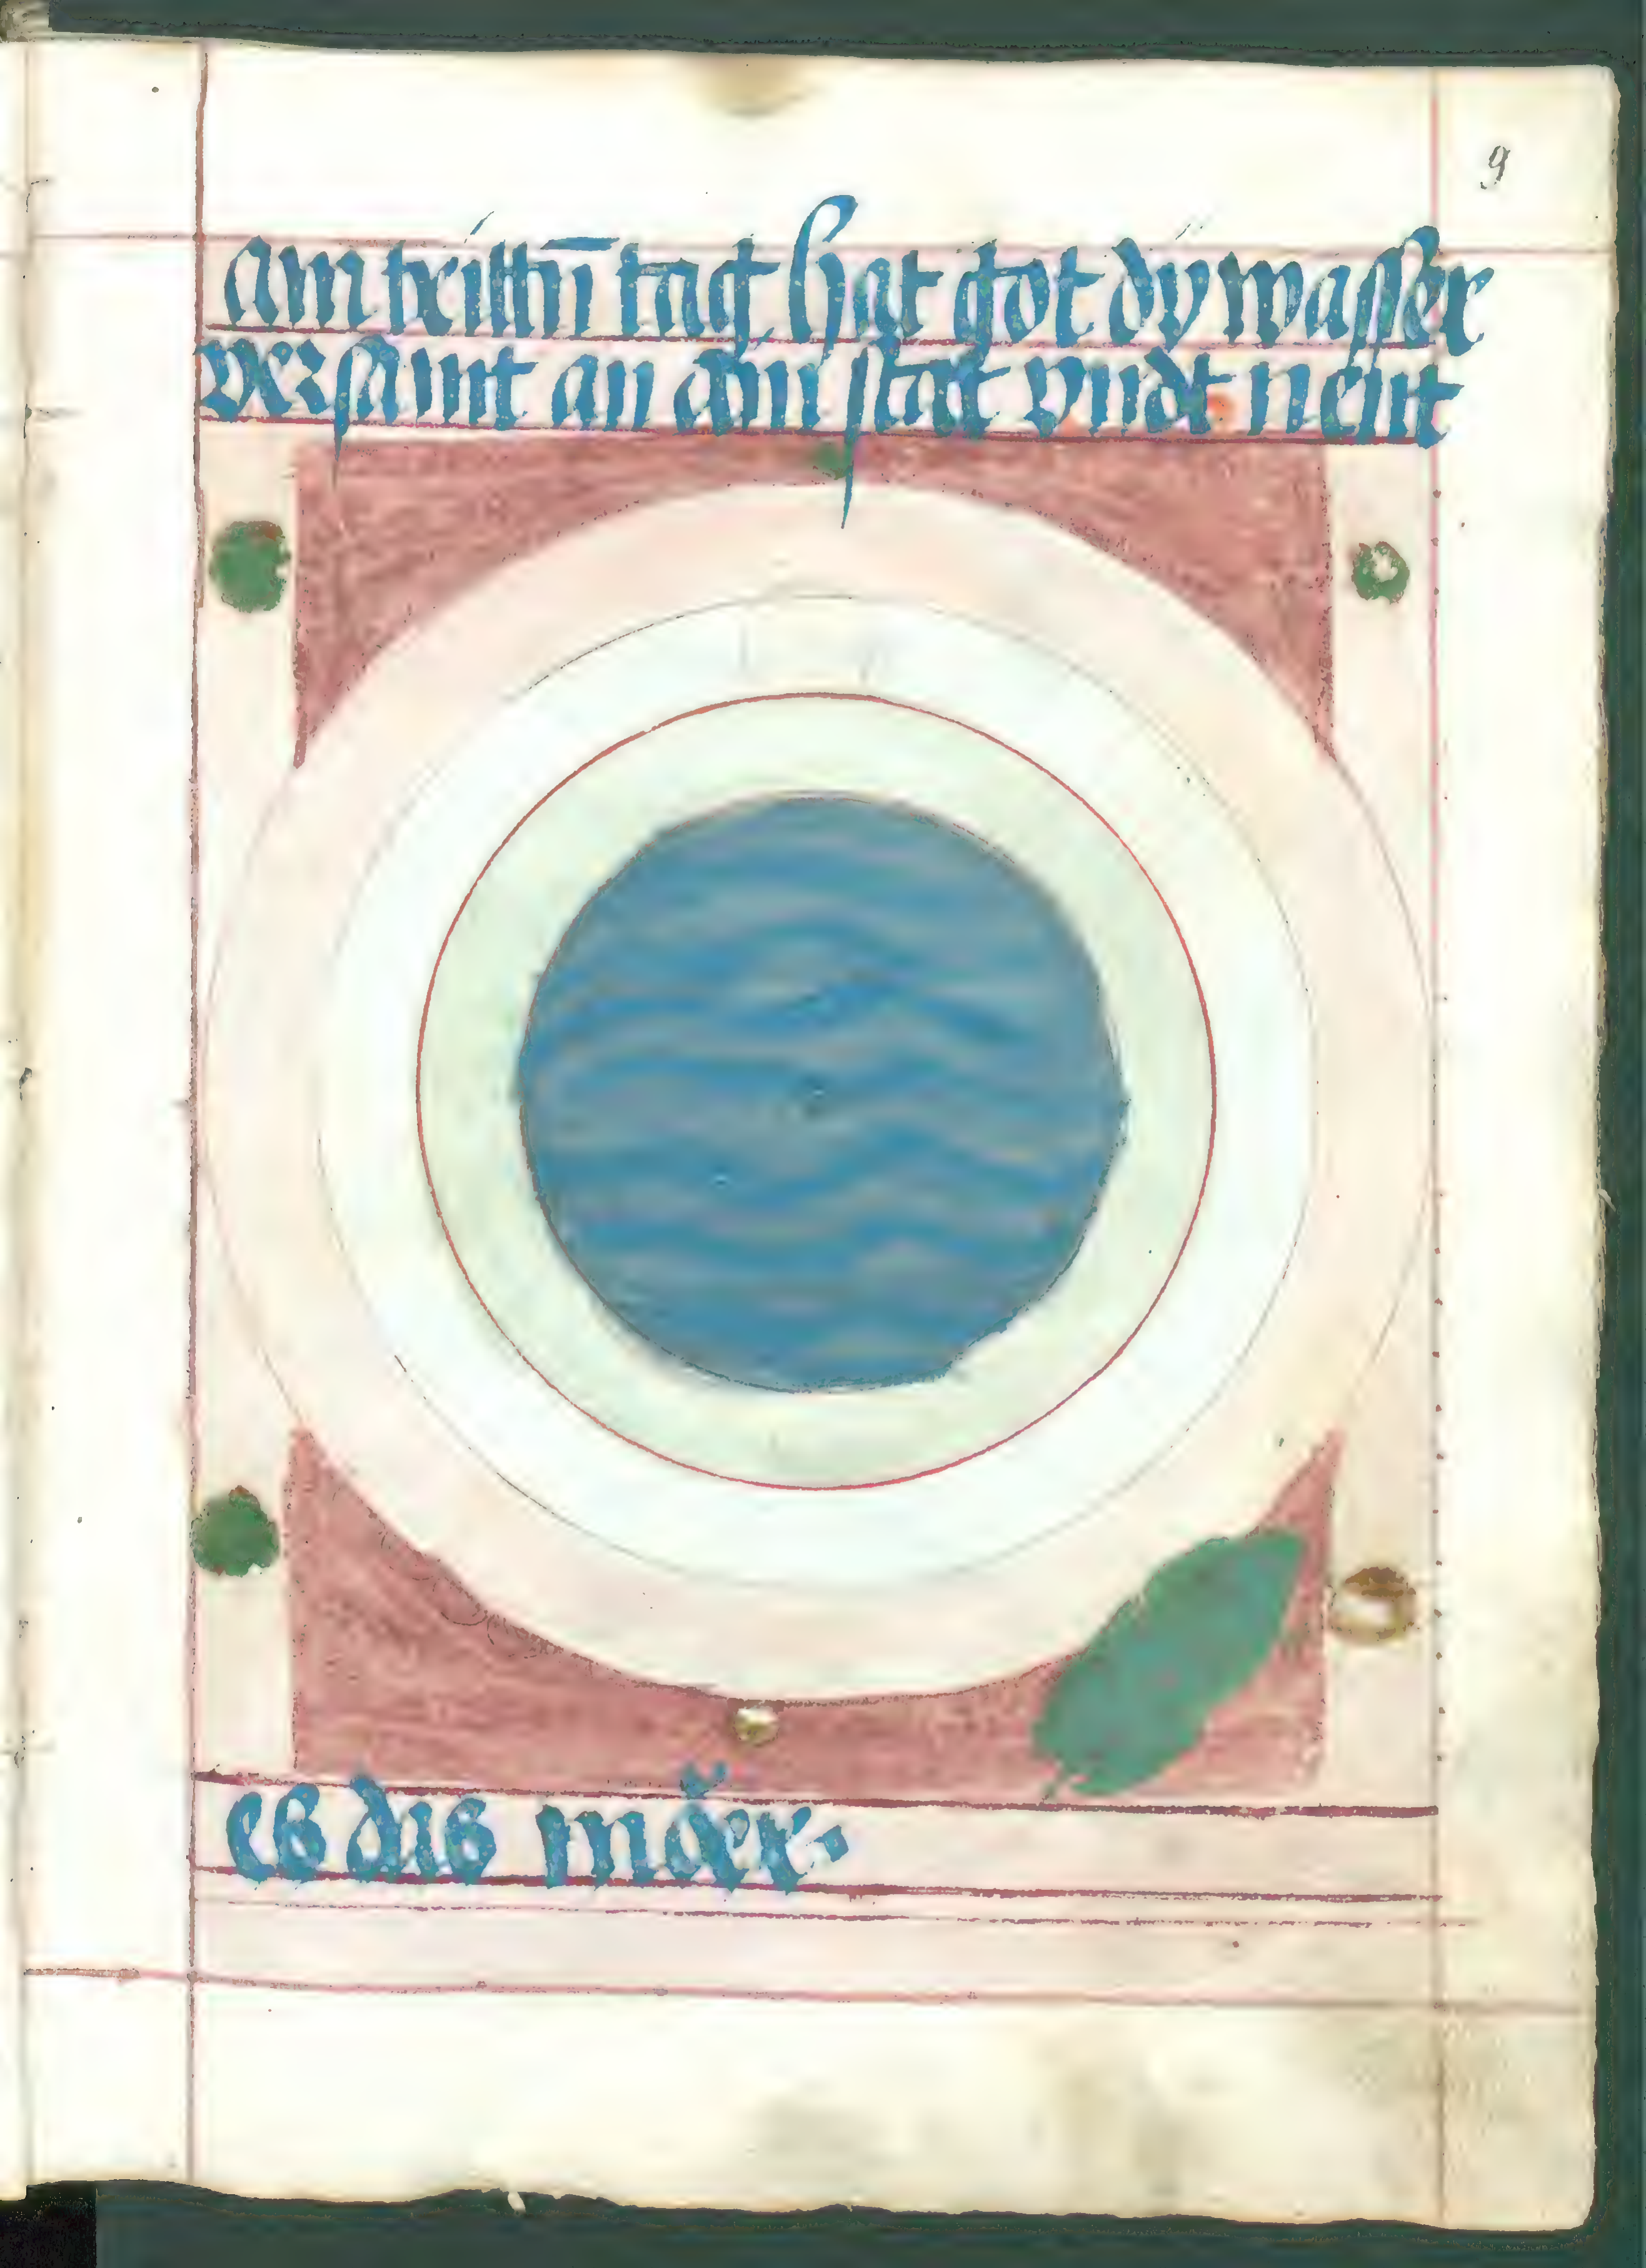 9
am trittn̄ tag hat got dy wasser
versamt an ain stat vndt nent
es dis mǒer.